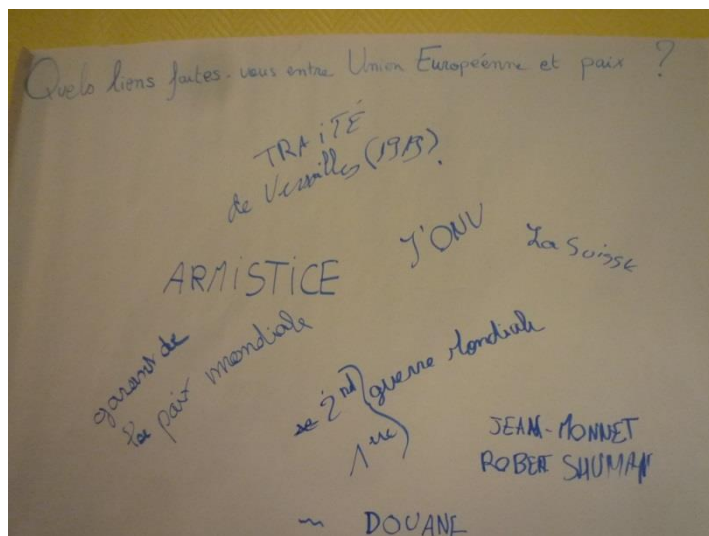 Quels liens faites-vous entre Union Européenne et paix ?
TRAiTÉ
de Versailles (1919).
ARMiSTiCE
l'ONU
La Suisse
garant de
la paix mondiale
2nd
1ère
guerre Mondiale
JEAN-MONNET
ROBERT SHUMAN
~ DOUANE